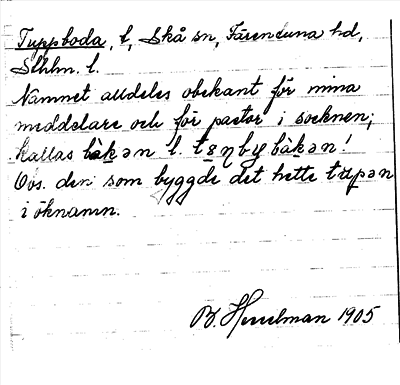 Tuppboda, l, Skå sn, Färentuna hd,
Sthlm. l.
Namnet alldeles obekant för mina
meddelare och för pastor i socknen;
kallas båkan l. tęŋby båkan!
Obs. den som byggde det hette tupan
i öknamn.
B. Hesselman 1905